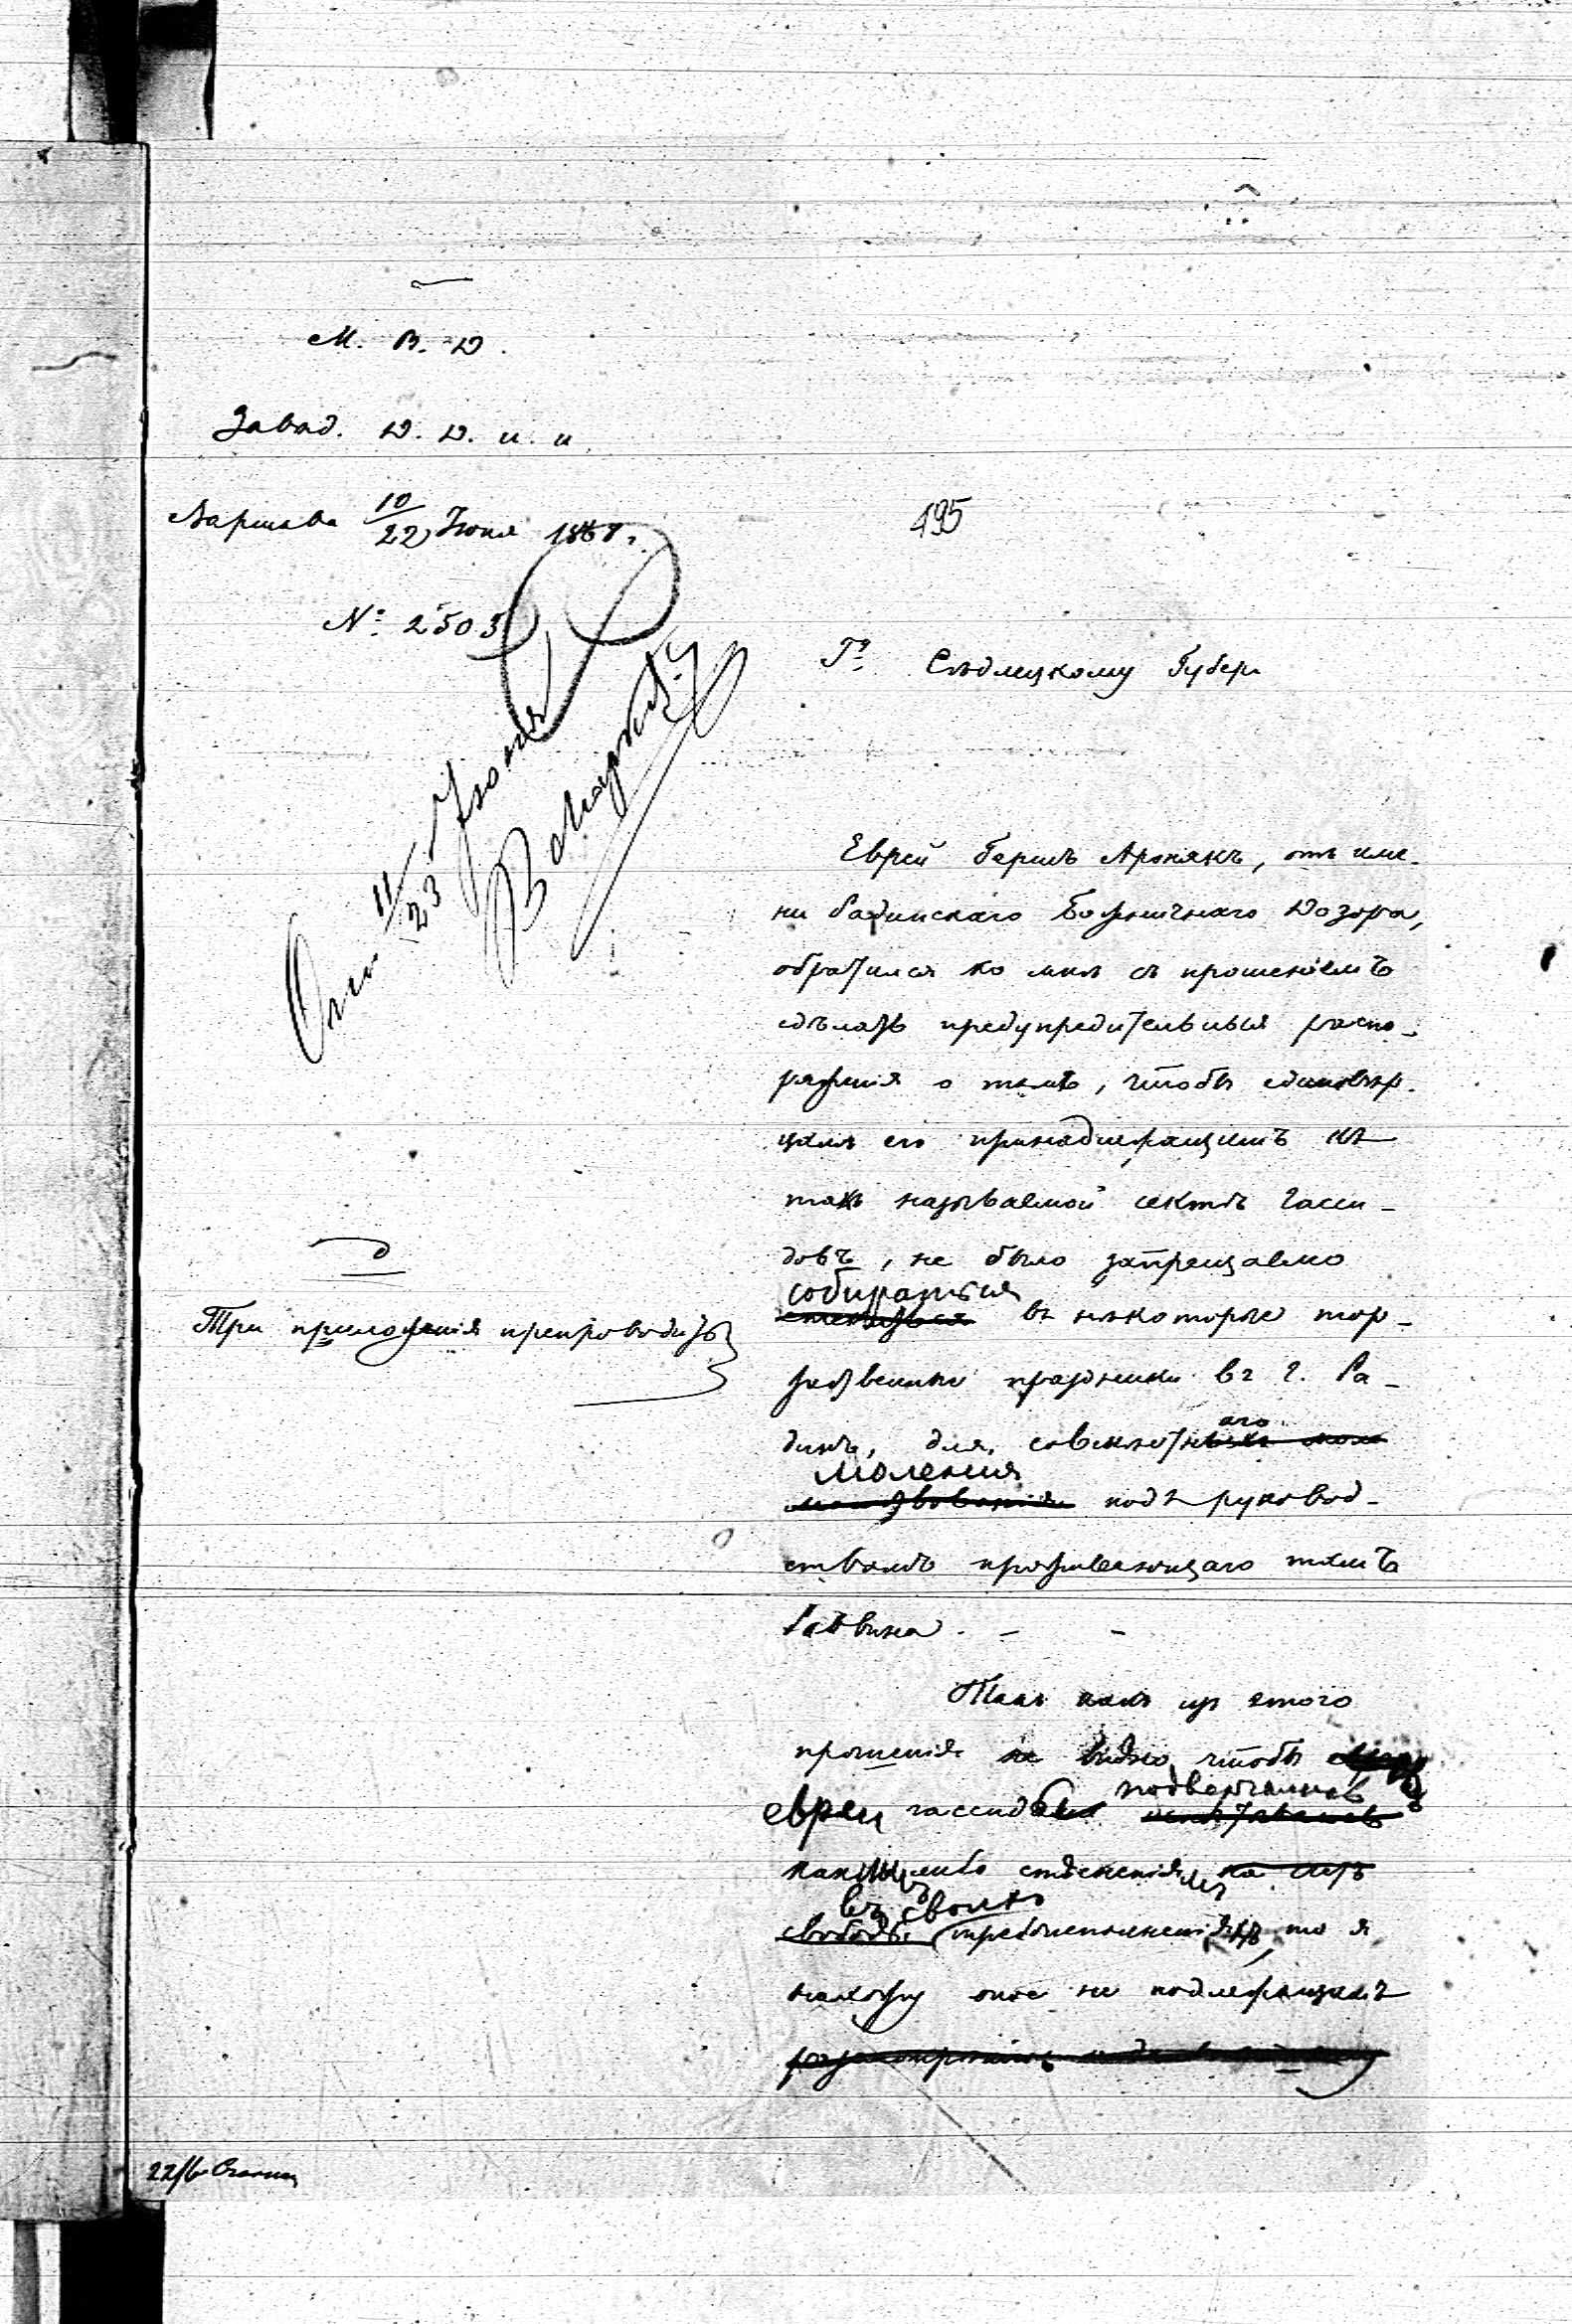 М. В. Д.
Завѣд. Д. Д. и. и.
Варшава 10/22 Іюня 1868 г.
№ 2503
495
11/23 Іюня
Гу Сѣдлецкому Губерн
Еврей Берилъ Аронякъ, отъ име-
ни Радинскаго Божничнаго Дозора,
обратился ко мнѣ съ прошеніемъ
сдѣлать предупредительныя распо-
ряженія о томъ, чтобы единовѣр-
цамъ его принадлежащимъ къ
такъ называемой сектѣ Гасси-
довъ, не было запрещаемо
собираться
въ нѣкоторые тор-
жественные праздники въ г. Ра-
динѣ, для совокупнаго
моленія
подъ руковод-
ствомъ проживающаго тамъ
Раввина. -
Три приложенія препроводить
Такъ какъ изъ этого
прошенія не видно, чтобы
подвергались
евреи гассиды
какимъ либо стѣсненіямъ
въ своихъ
свободѣ требоисполненіяхъ, то я
нахожу оное не подлежащимъ
22/6